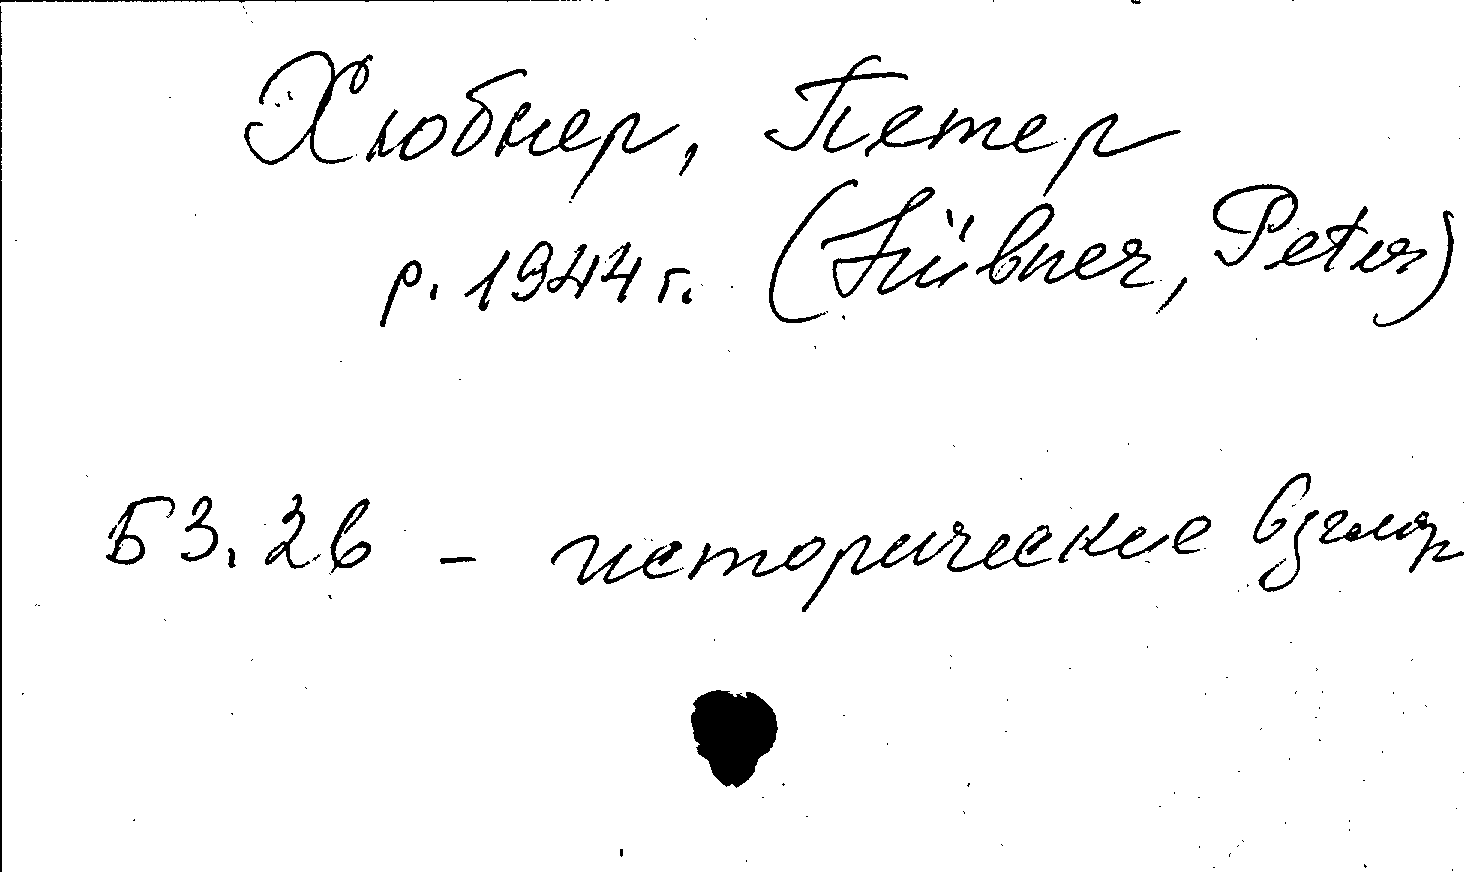 Хюбнер, Петер
р. 1944 г. (Hübner, Peter)
Б3.2в - исторические взгляд